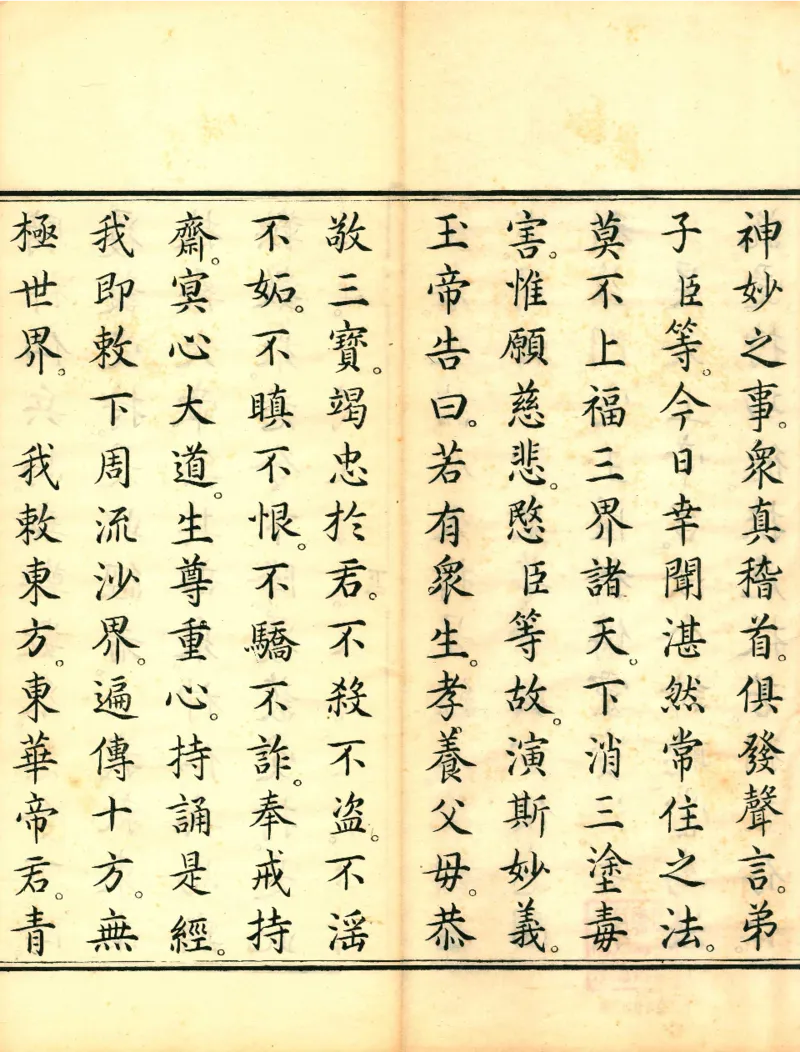 神妙之事。衆真稽首。俱發聲言。弟
子臣等。今日幸聞湛然常住之法。
莫不上福三界諸天。下消三塗毒
害。惟願慈悲。愍臣等故。演斯妙義。
玉帝告曰。若有衆生。孝養父母。恭
敬三寶。竭忠於君。不殺不盗。不滛
不妬。不瞋不恨。不驕不詐。奉戒持
齋。冥心大道。生尊重心。持誦是經。
我即敕下周流沙界。遍傳十方。無
極世界。　我敕東方。東華帝君。青